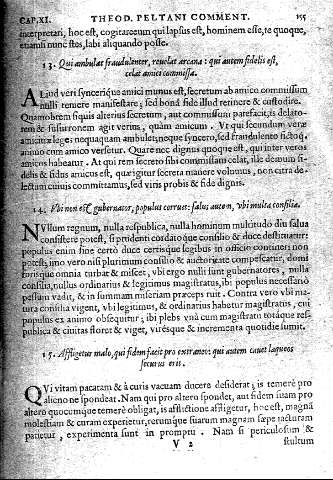 CAP. XI. THEOD. PELTANI COMMENT. 155
interpretari, hoc est, cogitare eum qui lapsus est, hominem esse, te quoque,
etiamsi nunc stes, labi aliquando posse.
13. Qui ambulat fraudulenter, reuelat arcana: qui autem fidelis est,
celat amici commissa.
ALiud veri syncerique amici munus est, secretum ab amico commissum
nulli temere manifestare, sed bona fide illud retinere & custodire.
Quamobrem siquis alterius secretum, aut commissum patefacit, is delato-
rem & susurronem agit verius, quam amicum. Vt qui secundum veræ
amicitiæ leges nequaquam ambulet; neque syncero, sed fraudulento fictoq́;
animo cum amico versetur. Quare nec dignus quoque est, qui inter veros
amicos habeatur. At qui rem secreto sibi commissam celat, ille demum fi-
delis & fidus amicus est, qua igitur secreta manere volumus, non citra de-
lectum cuiuis committamus, sed viris probis & fide dignis.
14. Vbi non est gubernator, populus corruet: salus autem, vbi multa consilia.
NVllum regnum, nulla respublica, nulla hominum multitudo diu saluo
consistere potest, si prudenti cordatoque consilio & duce destituatur:
populus enim sine certo duce certisque legibus in officio contineri non
potest; imo vero nisi plurimum consilio & auctoritate compescatur, domi
forisque omnia turbat & miscet, vbi ergo nulli sunt gubernatores, nulla
consilia, nullus ordinarius & legitimus magistratus, ibi populus necessario
pessum vadit, & in summam miseriam præceps ruit. Contra vero vbi ma-
tura consilia vigent, vbi legitimus, & ordinarius habetur magistratus, cui
populus ex animo obsequitur; ibi plebs vna cum magistratu totaque res-
publica & ciuitas floret & viget, viresque & incrementa quotidie sumit.
15. Affligetur malo, qui fidem facit pro extraneo: qui autem cauet laqueos
securus erit.
QVi vitam pacatam & à curis vacuam ducere desiderat, is temerè pro
alieno ne spondeat. Nam qui pro altero spondet, aut fidem suam pro
altero quocumque temerè obligat, is afflictione affligetur, hoc est, magnã
molestiam & curam experietur, rerumque suarum magnam sæpe iacturam
patietur, experimenta sunt in promptu. Nam si periculosum &
V 2 stultum